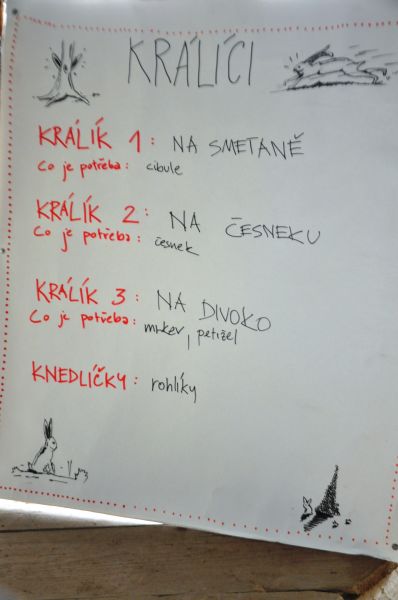 KRÁLÍCI
KRÁLÍK 1: NA SMETANĚ
Co je potřeba: cibule
KRÁLÍK 2: NA ČESNEKU
Co je potřeba: česnek
KRÁLÍK 3: NA DIVOKO
Co je potřeba: mrkev, petržel
KNEDLÍČKY: rohlíky